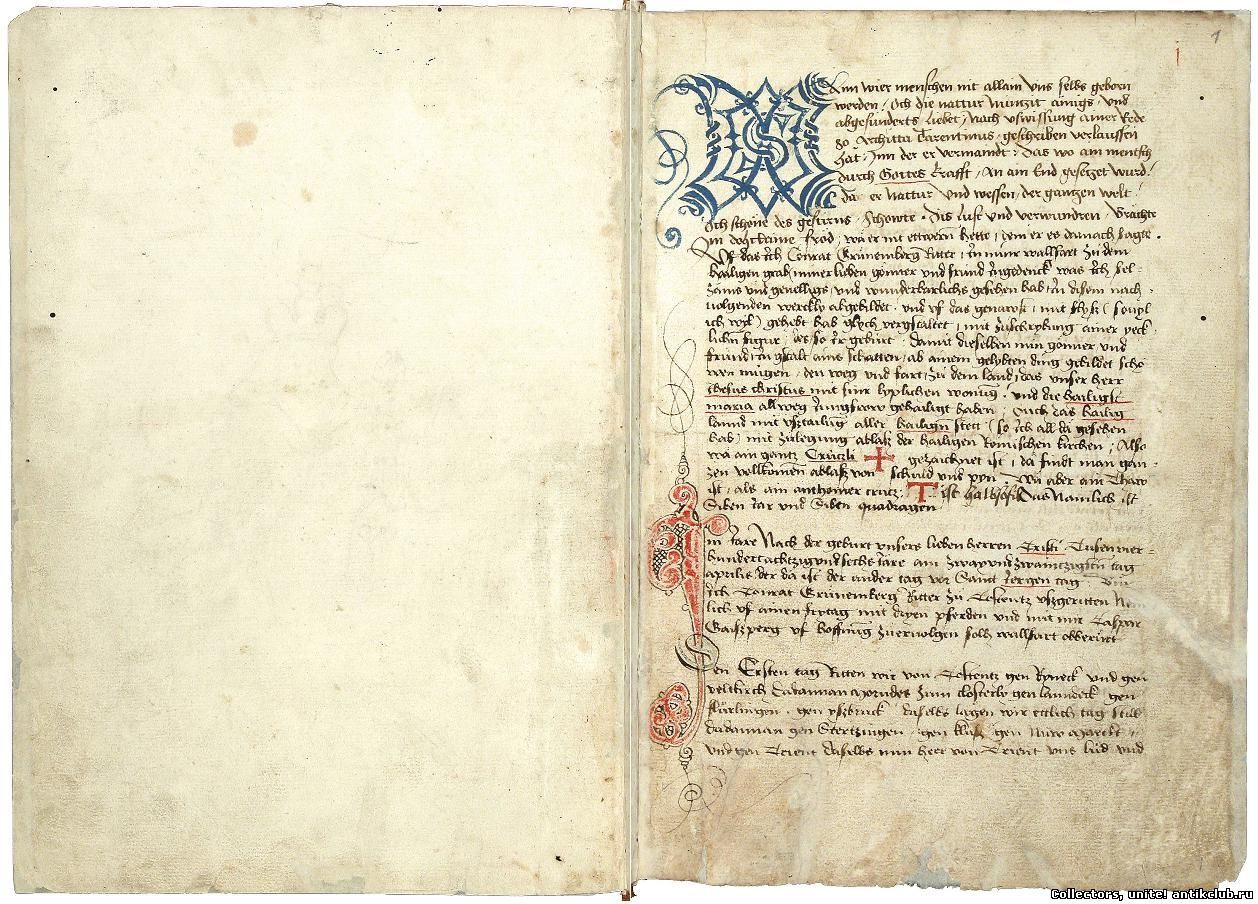 1
Ann wier menschen nit allain Vns selbs geborn
werden / Och die nattur Nüntzit ainigs / Vnd
abgesunderts liebet / Nach vswissung ainer Rede
So Architta Tarentinus / geschriben verlaussen
hat / Inn der er vermandt / Das wo ain mentsch
durch Gottes Krafft / An ain End gesetzet wurd /
da er Nattur Vnd wessen / der gantzen welt /
Och schöne des gestirns / Schowte Vnd verwundren / Brächte
Im fröd / wa er nit ettwem hette / dem er es darnach sagte .
Vf das Ich Conrat Grünemberg Ritter / In miner wallfart Zu dem
hailigen grab / miner lieben gönner vnd fründ Ingedenck / was Ich sel-
Zams vnd gevelligs / vnd wunderbarlichs gesehen hab / In disem nach
uolgenden werckly abgebildet / vnd vf das genawist / mit flyß / souyl
ich wyl / gehebt hab glych vergstaltet / mit Zuschrybung ainer yeck
lichen figur / des / so Ir gebürt / Damit dieselben min gönner vnd
fründ / In gstalt ains schatten / ab ainem gelypten ding gebildet Scho
wen mügen / den weg vnd fart / Zu dem land / das vnser herr
Jhesus Christus mit siner lyplichen wonung / vnd die hailigst
maria allweg Jungfrow gehailigt haben / Ouch das hailig
lannd mit vsztailung aller hailigen stett / so Ich all da gesehen
hab / mit Zulegung ablaß der hailigen Römischen kirchen / Also
wa ain gantz Crützli + gezaichnet ist / da findt man gan
zen vollkomen ablaß von schuld vnd pyn / Wa aber ain Thaw
ist / als ain anthonier crütz / T ist halbs / Das Namlich ist
Siben Jar vnd Siben quadragen
Im Jare Nach der geburt vnsers lieben herren Cristi / Tusennt vier-
hundert achtzig vnd sechs Jare am Zway vnd Zwaintzigsten tag
aprilis / der da ist der ander tag vor Sannt Jergen tag / Bin
Ich Conrat Grünemberg Ritter Zu Costentz vszgeritten Nem
lich vf ainen frytag mit dryen pferden vnd mit mir Caspar
Gaiszperg vf hoffnung Zuervolgen solh wallfart obberürt
Den Ersten tag Ritten wir von Costentz gen Ryneck vnd gen
veltkirch dadannan Morndes Zum Closterly gen lanndeck gen
flürlingen / gen yszbruck / daselbs lagen wir ettlich tag still
dadannan gen Stertzingen / gen klusz / gen Nüw Marckt /
vnd gen Trient daselbs min herr von Trient vns lüd vnd
Collectors, unite! antikclub.ru